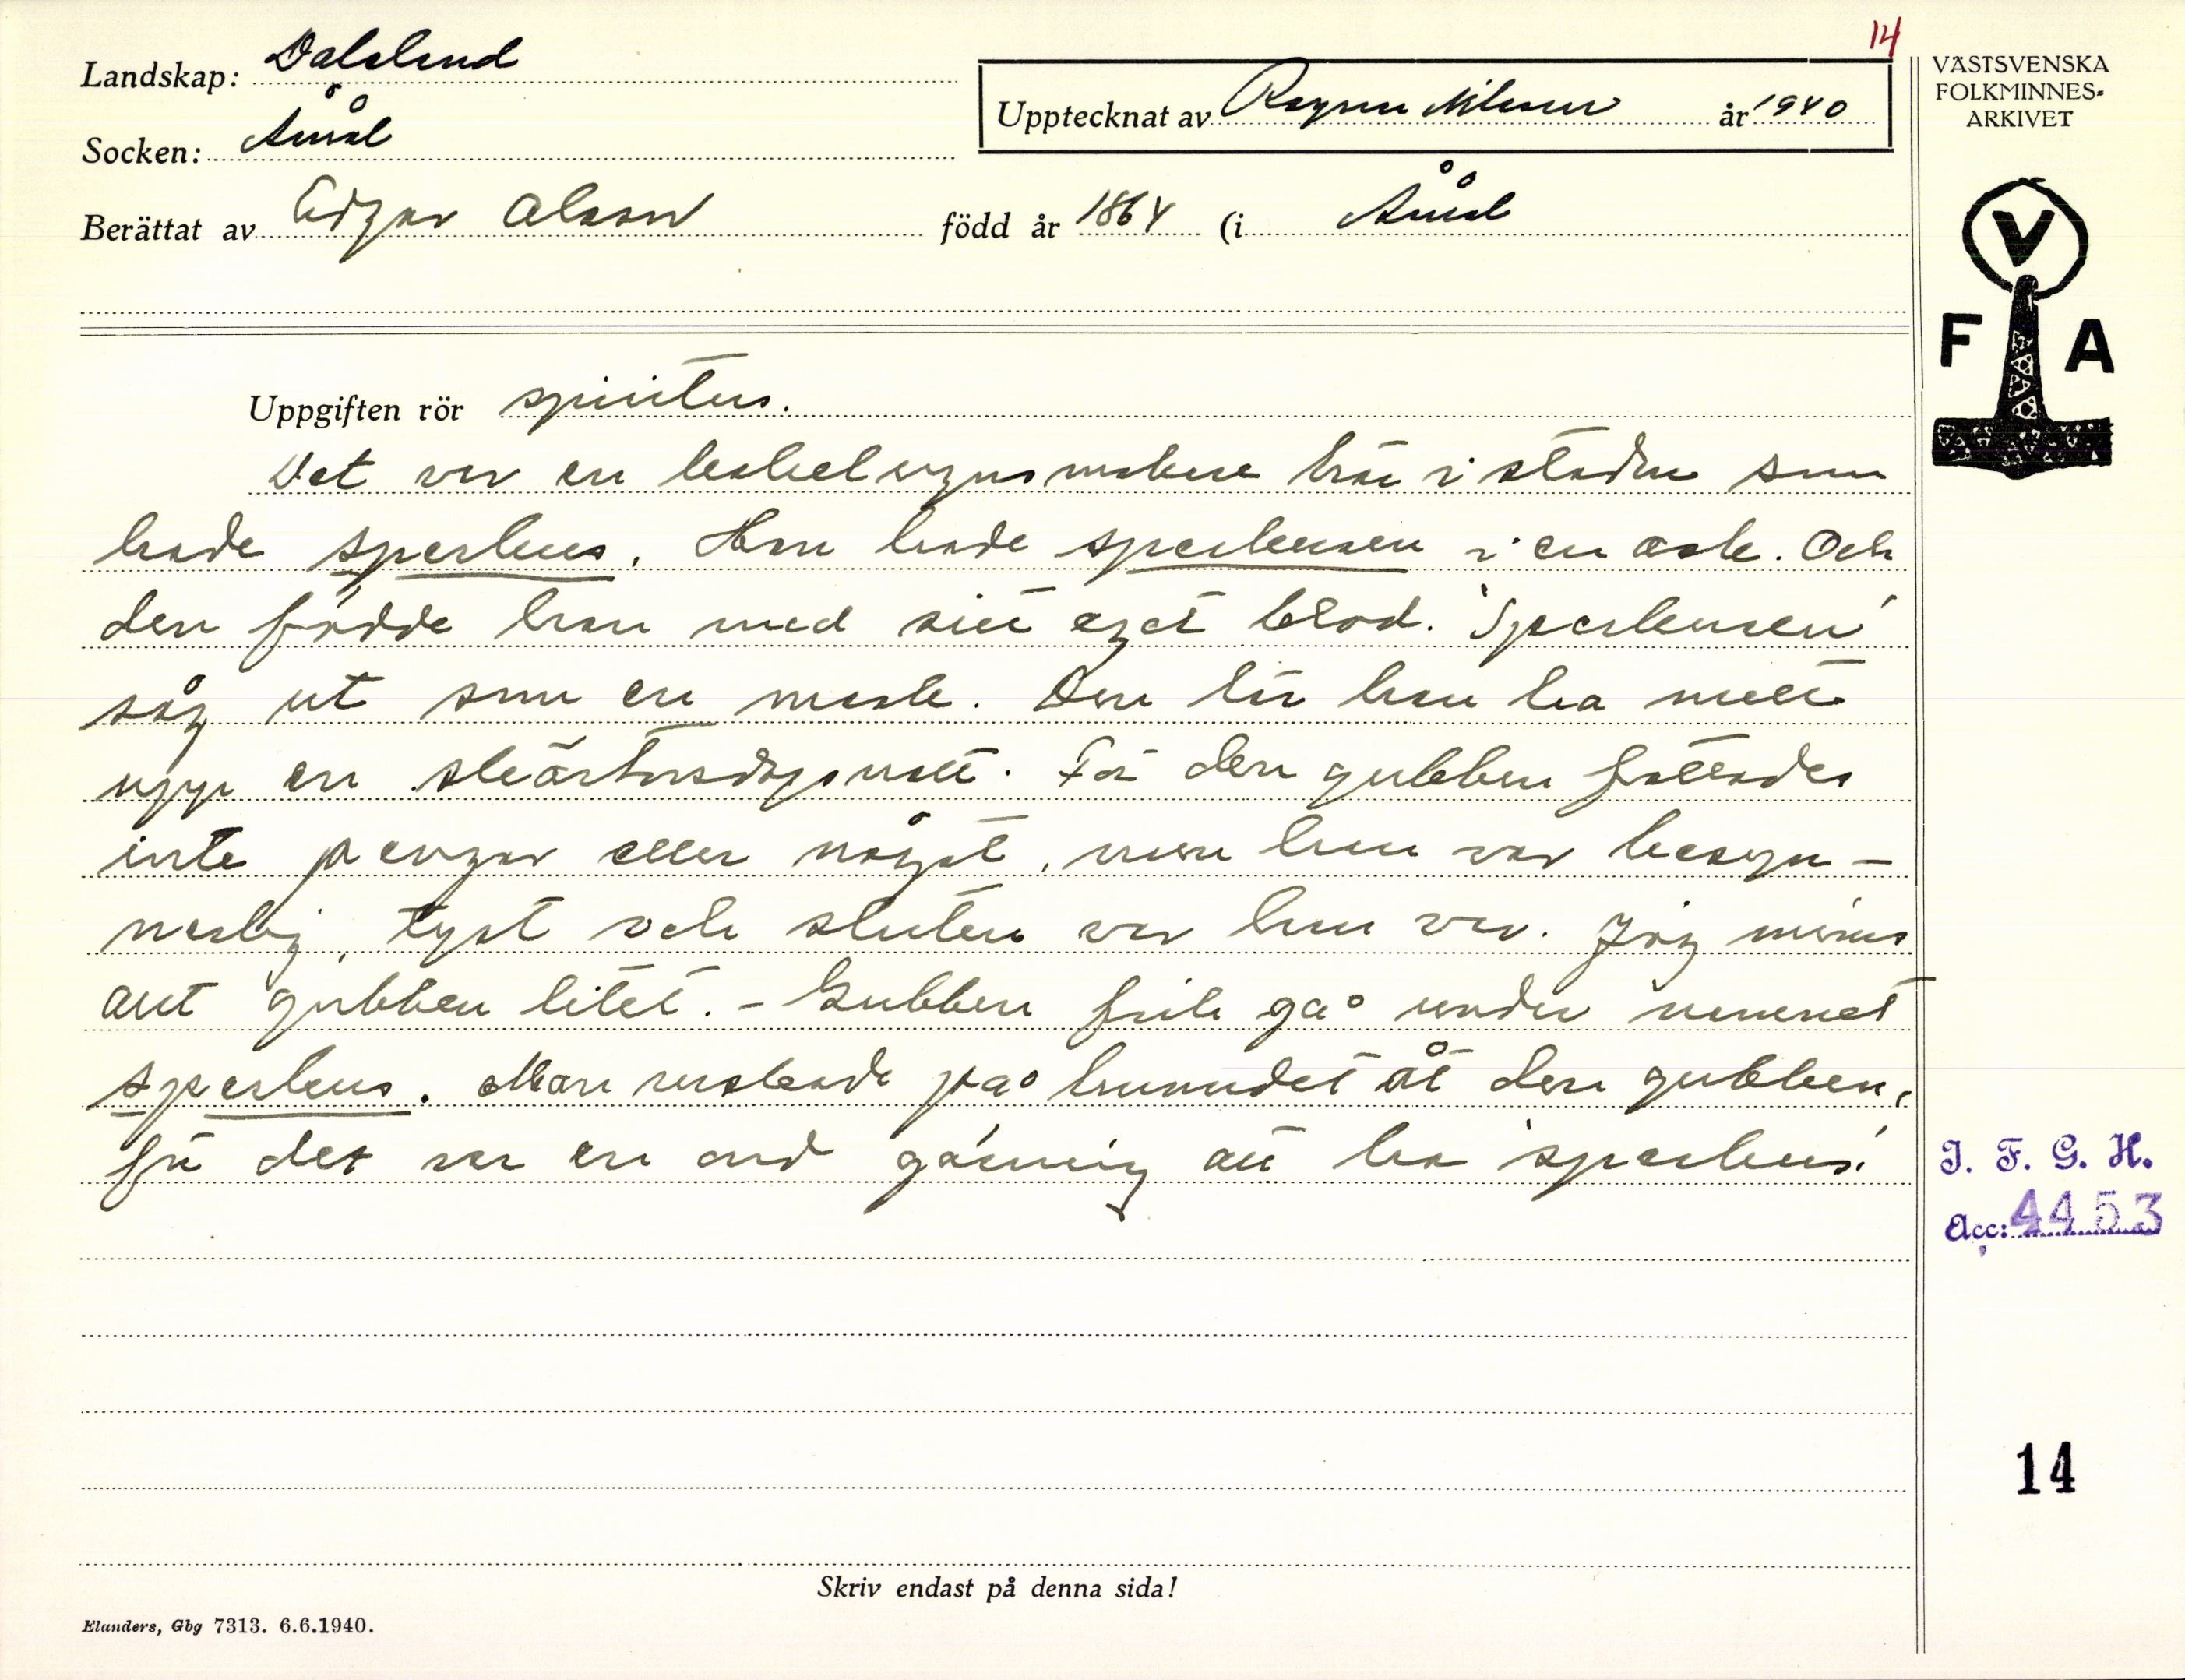 14
Landskap: Dalsland
Socken: Åmål
Upptecknat av Ragnar Nilsson år 1940
Berättat av Edgar Olsson född år 1864 (i Åmål
VÄSTSVENSKA
FOLKMINNES-
ARKIVET
V
F A
Uppgiften rör spiritus.
Det var en kakelugnsmakare här i staden som
hade sperkus. Han hade sperkusen i en ask. Och
den födde han med sitt eget blod. 'Sperkusen'
såg ut som en mask. Den lär han ha mött
upp en skärtorsdagsnatt. För den gubben fattades
inte pengar eller något, men han var besyn-
nerlig, tyst och sluten var han var. Jag minns
ant gubben litet. - Gubben fick gå under namnet
sperkus. Man ruskade på huvudet åt den gubben,
för det var en ond gärning att ha 'sperkus.'
I. F. G. H.
Acc: 4453
14
Skriv endast på denna sida!
Elanders, Gbg 7313. 6.6.1940.